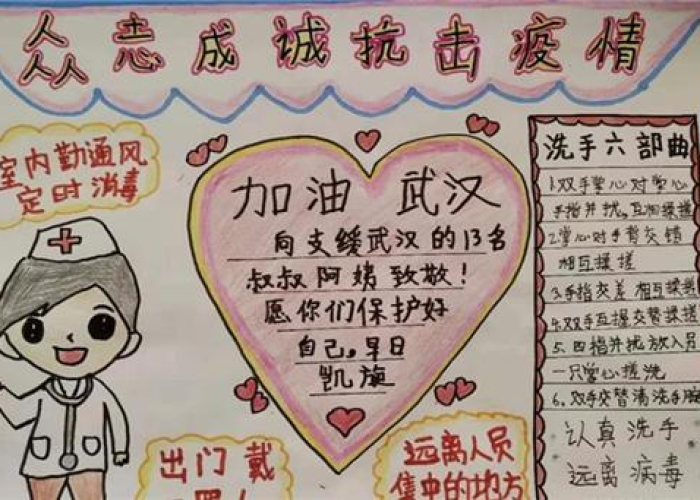 众志成诚抗击疫情
室内勤通风
定时消毒
加油 武汉
向支缓武汉的13名
叔叔阿姨致敬!
愿你们保护好
自己,早日
凯旋
洗手六部曲
1.双手掌心对掌心
手指并拢,互相揉搓
2.掌心对手背交错
相互揉搓
3.手指交差 相互揉搓
4.双手互握交替揉搓
5.四指并拢放入另
一只掌心搓洗
6.双手交替清洗手腕
认真洗手
远离病毒
出门戴
远离人员
集中的地方